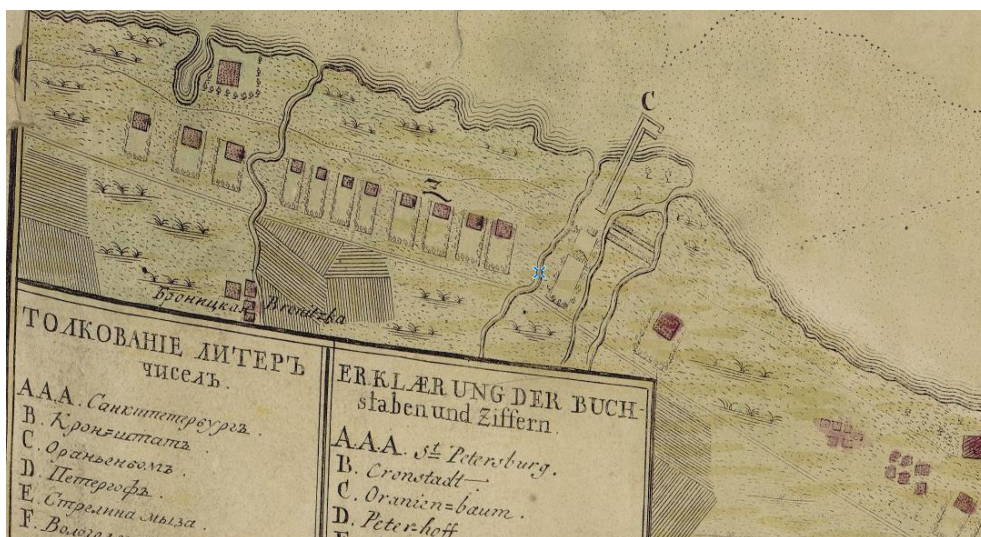 C
Z
Броницкая Bronitzka
ТОЛКОВАНІЕ ЛИТЕРЪ
чиселъ.
A.A.A. Санкшпетербургъ.
B. Крон=штатъ.
C. Ораньенбомъ.
D. Петергофъ.
E. Стрелина мыза.
F.
ERKLÆRUNG DER BUCH-
staben und Ziffern.
A.A.A. St Petersburg.
B. Cronstadt
C. Oranien=baum.
D. Peter-hoff